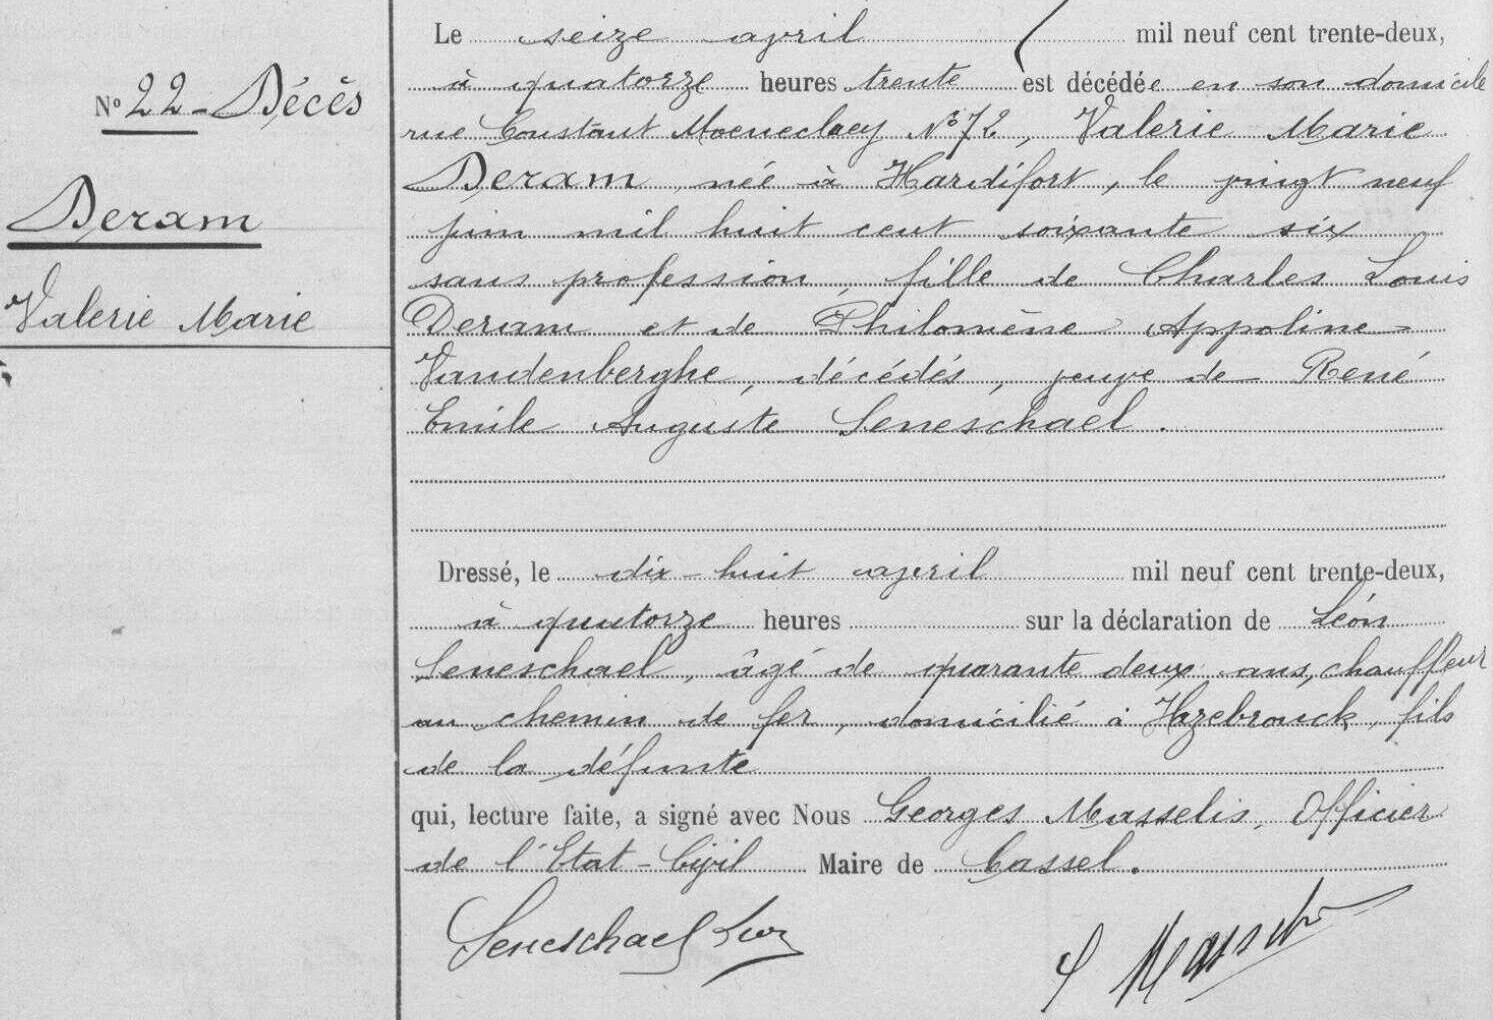 Nº 22 - Décès
Deram
Valerie Marie
Le seize avril mil neuf cent trente-deux,
à quatorze heures trente est décédée en son domicile
rue Constant Moeneclaey Nº 72, Valerie Marie
Deram, née à Hardifort, le vingt neuf
juin mil huit cent soixante six
sans profession, fille de Charles Louis
Deram et de Philomène Appoline
Vandenberghe, décédés, veuve de René
Emile Auguste Seneschael.
Dressé, le dix-huit avril mil neuf cent trente-deux,
à quatorze heures sur la déclaration de Léon
Seneschael, âgé de quarante deux ans, chauffeur
au chemin de fer, domicilié à Hazebrouck, fils
de la défunte
qui, lecture faite, a signé avec Nous Georges Masselis, Officier
de l'Etat-Civil Maire de Cassel.
Seneschael